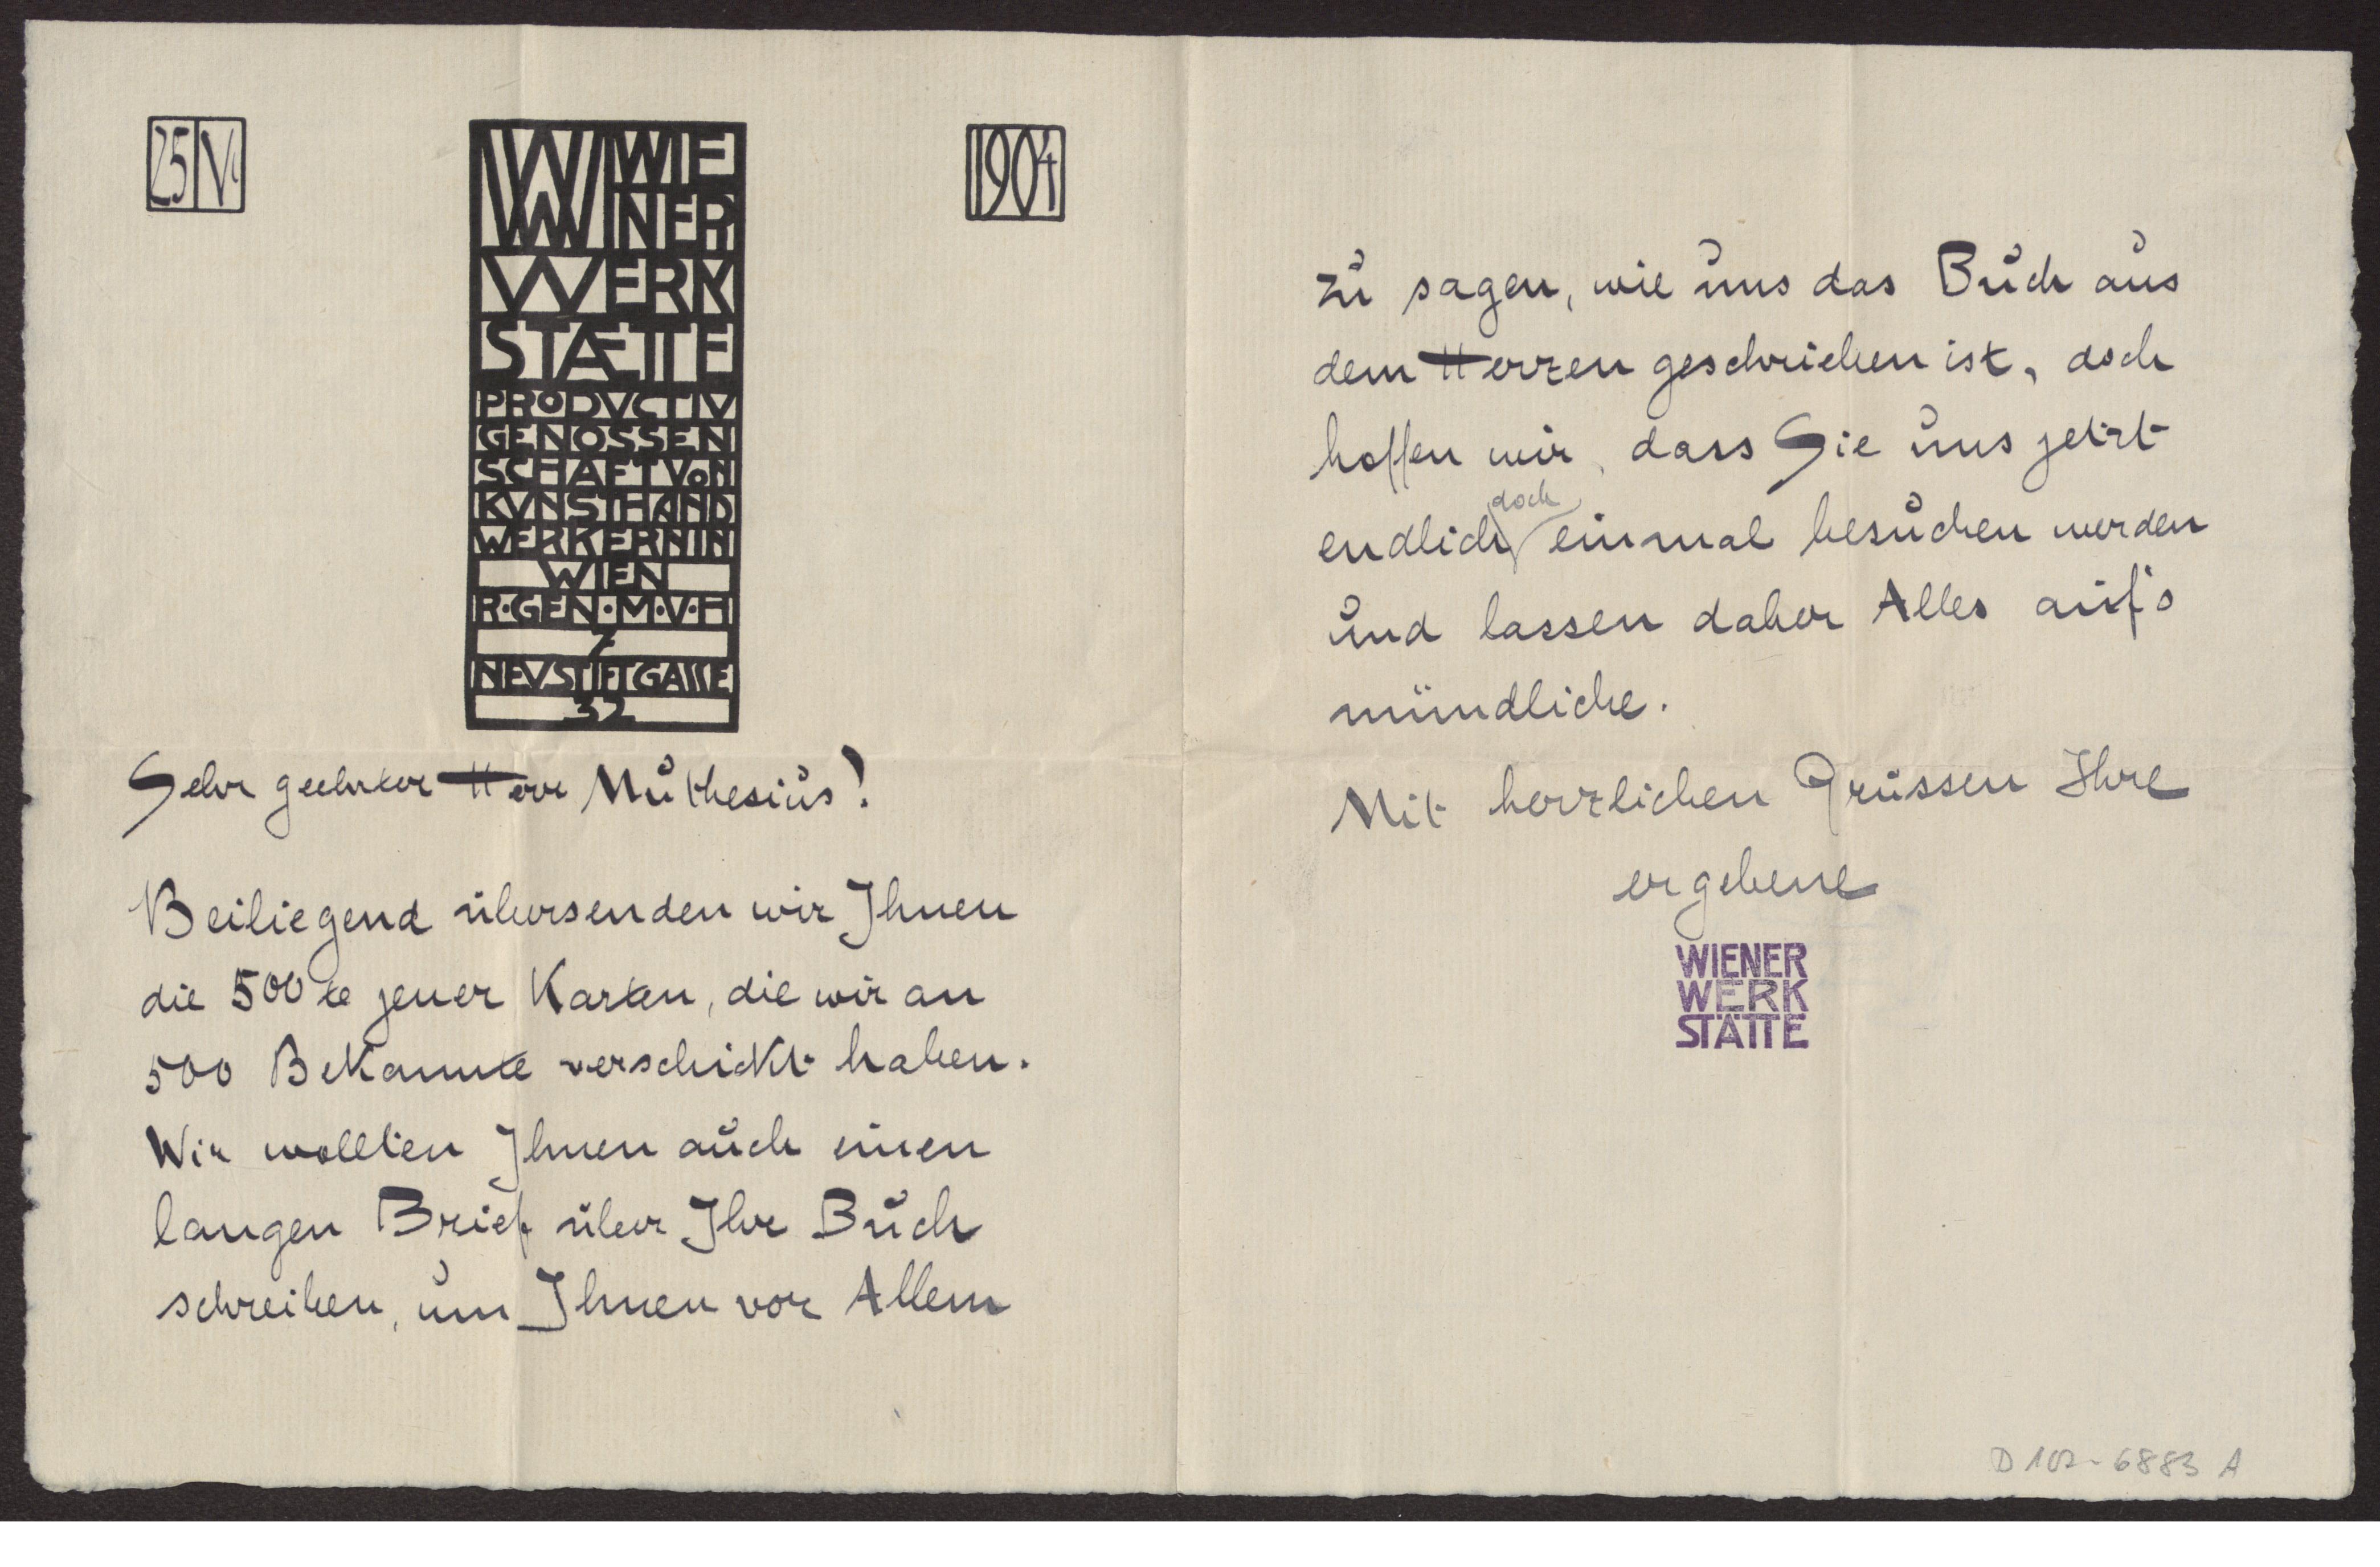 25 VI
1904
WW WIE
NER
WERK
STÆTTE
PRODVCTIV
GENOSSEN
SCHAFT VON
KVNSTHAND
WERKERN IN
WIEN
R·GEN·M·V·H
7
NEVSTIFTGASSE
32
Sehr geehrter Herr Muthesius!
Beiliegend übersenden wir Ihnen
die 500te jener Karten, die wir an
500 Bekannte verschickt haben.
Wir wollten Ihnen auch einen
langen Brief über Ihr Buch
schreiben, um Ihnen vor Allem
zu sagen, wie uns das Buch aus
dem Herzen geschrieben ist, doch
hoffen wir, dass Sie uns jetzt
endlich doch einmal besuchen werden
und lassen daher Alles auf's
mündliche.
Mit herzlichen Grüssen Ihre
ergebene
WIENER
WERK
STÄTTE
D 102-6883 A